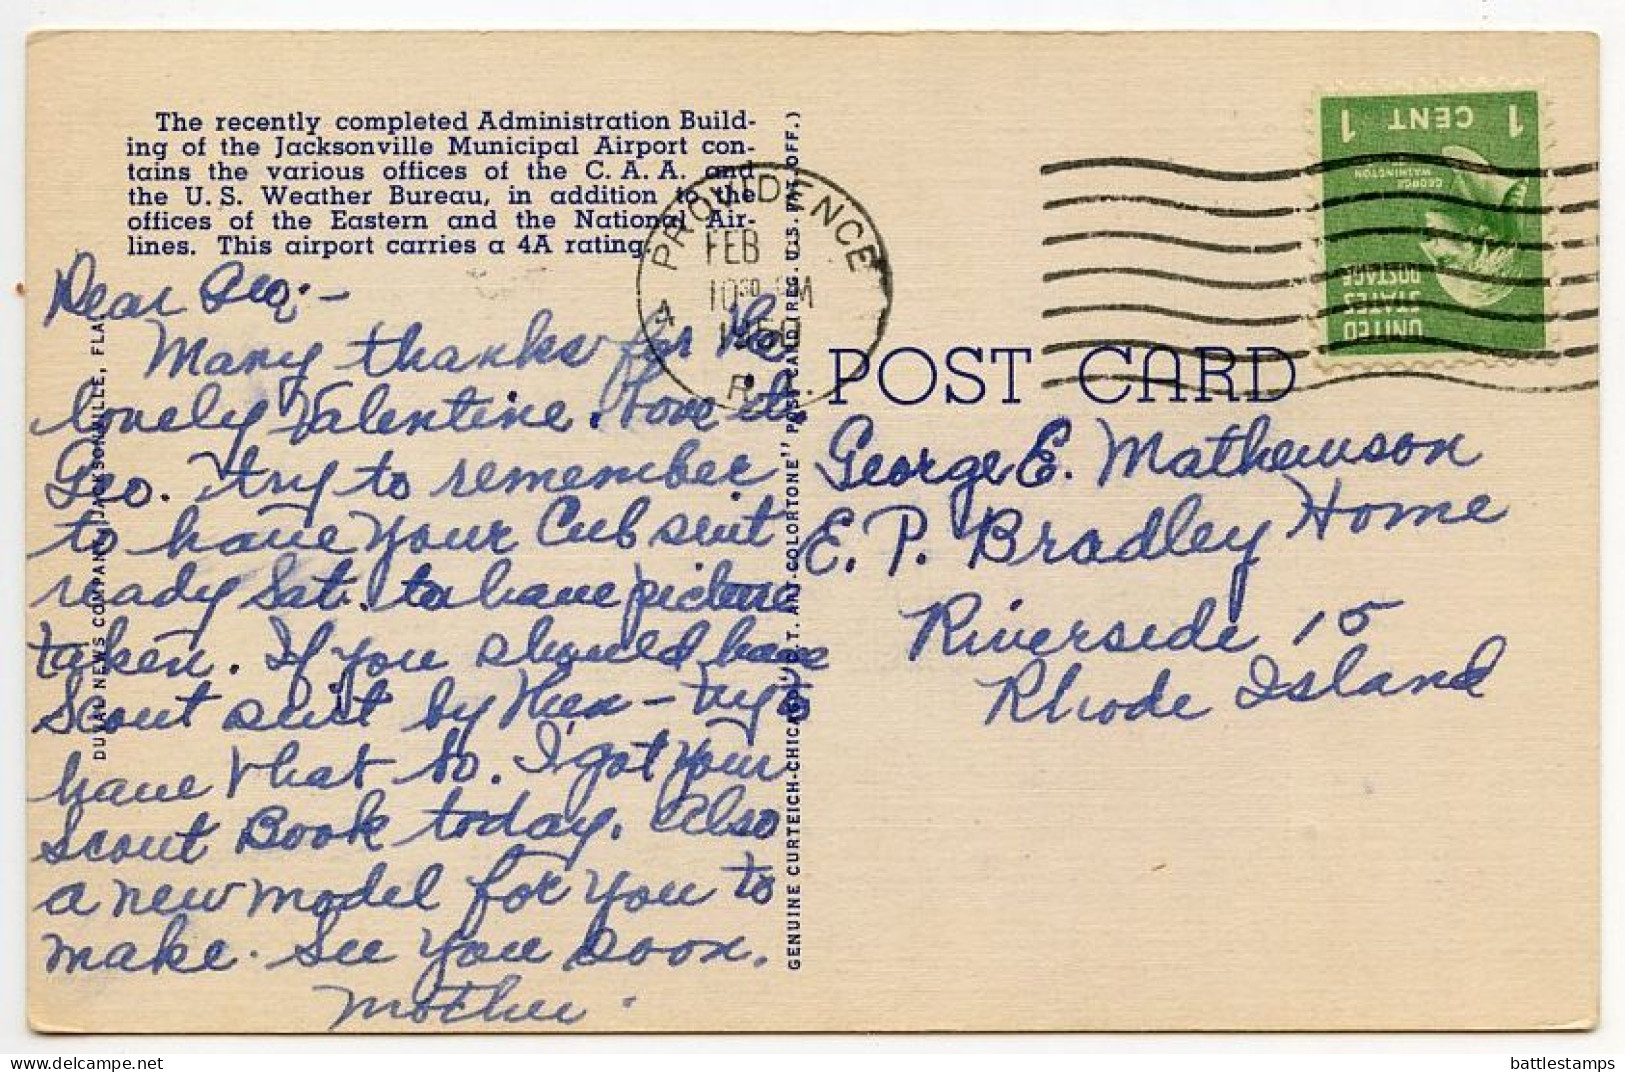 The recently completed Administration Build-
ing of the Jacksonville Municipal Airport con-
tains the various offices of the C. A. A. and
the U. S. Weather Bureau, in addition to the
offices of the Eastern and the National Air-
lines. This airport carries a 4A rating.
Dear Geo:-
Many thanks for the
lovely Valentine. Love it.
Geo. try to remember
to have your Cub suit
ready Sat. to have picture
taken. If you should have
Scout suit by then - try to
have that to. I got your
Scout Book today. Also
a new model for you to
make. See you soon.
Mother.
DUVAL NEWS COMPANY, JACKSONVILLE, FLA.
GENUINE CURTEICH-CHICAGO "C. T. ART-COLORTONE" POST CARD (REG. U. S. PAT. OFF.)
PROVIDENCE
FEB
10 30 PM
195
R. I.
4
1 CENT 1
GEORGE
WASHINGTON
UNITED
STATES
POSTAGE
POST CARD
George E. Mathewson
E. P. Bradley Home
Riverside 15
Rhode Island
battlestamps